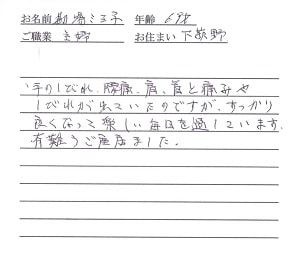 お名前 勘場ミヱ子 年齢 69才
ご職業 主婦 お住まい 下荻野
手のしびれ、腰痛、肩、首と痛みや
しびれが出ていたのですが、すっかり
良くなって楽しい毎日を過しています。
有難うご座居ました。